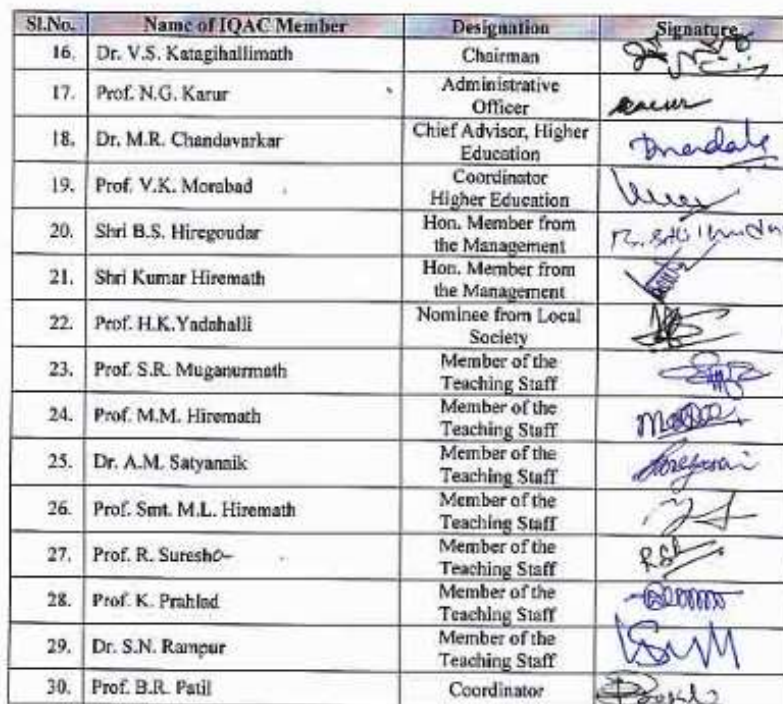 Sl.No. Name of IQAC Member Designation Signature
16. Dr. V.S. Katagihallimath Chairman
17. Prof. N.G. Karur Administrative
Officer
18. Dr. M.R. Chandavarkar Chief Advisor, Higher
Education
19. Prof. V.K. Morabad Coordinator
Higher Education
20. Shri B.S. Hiregoudar Hon. Member from
the Management
21. Shri Kumar Hiremath Hon. Member from
the Management
22. Prof. H.K.Yadahalli Nominee from Local
Society
23. Prof. S.R. Muganurmath Member of the
Teaching Staff
24. Prof. M.M. Hiremath Member of the
Teaching Staff
25. Dr. A.M. Satyannik Member of the
Teaching Staff
26. Prof. Smt. M.L. Hiremath Member of the
Teaching Staff
27. Prof. R. Suresh Member of the
Teaching Staff
28. Prof. K. Prahlad Member of the
Teaching Staff
29. Dr. S.N. Rampur Member of the
Teaching Staff
30. Prof. B.R. Patil Coordinator